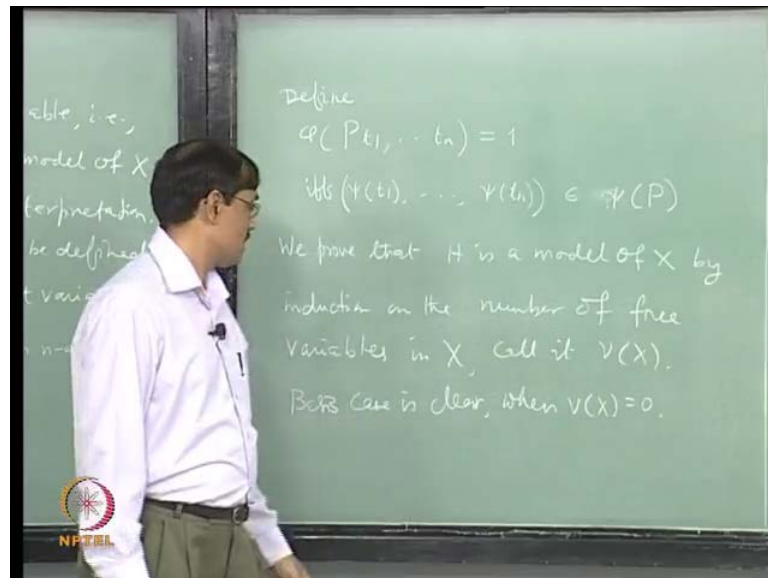 able, i.e.,
model of X
terpretation.
be defined
t varia
n n-a
Define
φ(Pt₁, ... tₙ) = 1
iff (ψ(t₁), ..., ψ(tₙ)) ∈ ψ(P)
We prove that H is a model of X by
induction on the number of free
variables in X, call it ν(X).
Basis case is clear, when ν(X)=0.
NPTEL